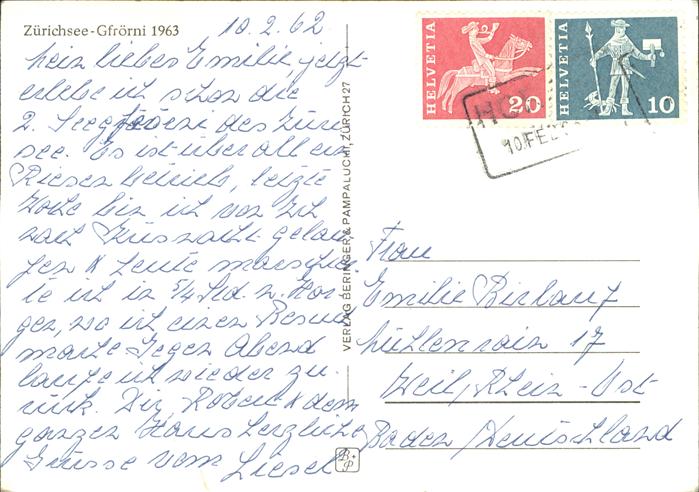 Zürichsee-Gfrörni 1963
10.2.62
Mein liebes Emilie, jetzt
erlebe ich schon die
2. Seegfröne des Züri
see. Es ist überall ein
Riesen betrieb, letzte
Woche bin ich von
nach gelau
fen & heute marschier
te ich in 5/4 Std. n. Hor
gen, wo ich einen Besuch
machte. Gegen Abend
laufe ich wieder zu
rück. Dir, Robert & dem
ganzen Haus herzliche
Grüsse vom Liesel
VERLAG BERINGER & PAMPALUCHI, ZÜRICH 27
B+P
HELVETIA
20
HELVETIA
10
HOR
10.FEB.
Frau
Emilie Birlauf
Mühlenrain 17
Weil/Rhein-Ost
Baden/Deutschland